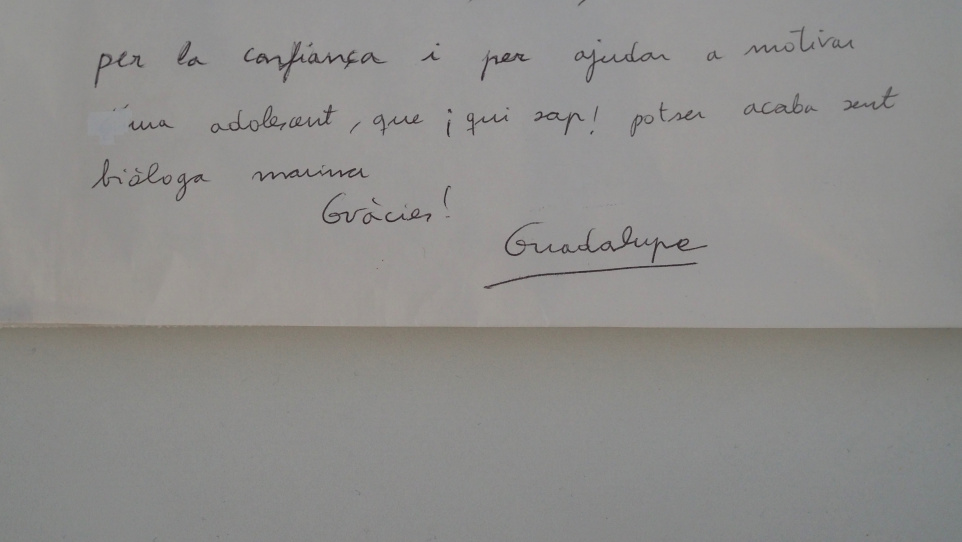 per la confiança i per ajudar a motivar
una adolescent, que ¡qui sap! potser acaba sent
biòloga marina
Gràcies!
Guadalupe